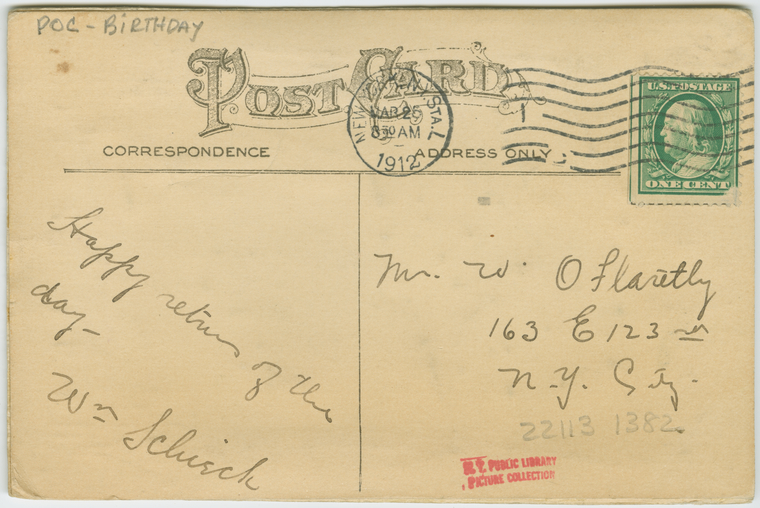 POC - BIRTHDAY
POST CARD
NEW YORK, N.Y. STA. L
MAR 25
830 AM
1912
U.S. POSTAGE
ONE CENT
CORRESPONDENCE
ADDRESS ONLY
Happy returns of the
day -
Wm Schieck
Mr. W. O Flaretly
163 E 123 rd
N.Y. City.
22113 1382
N.Y. PUBLIC LIBRARY
PICTURE COLLECTION